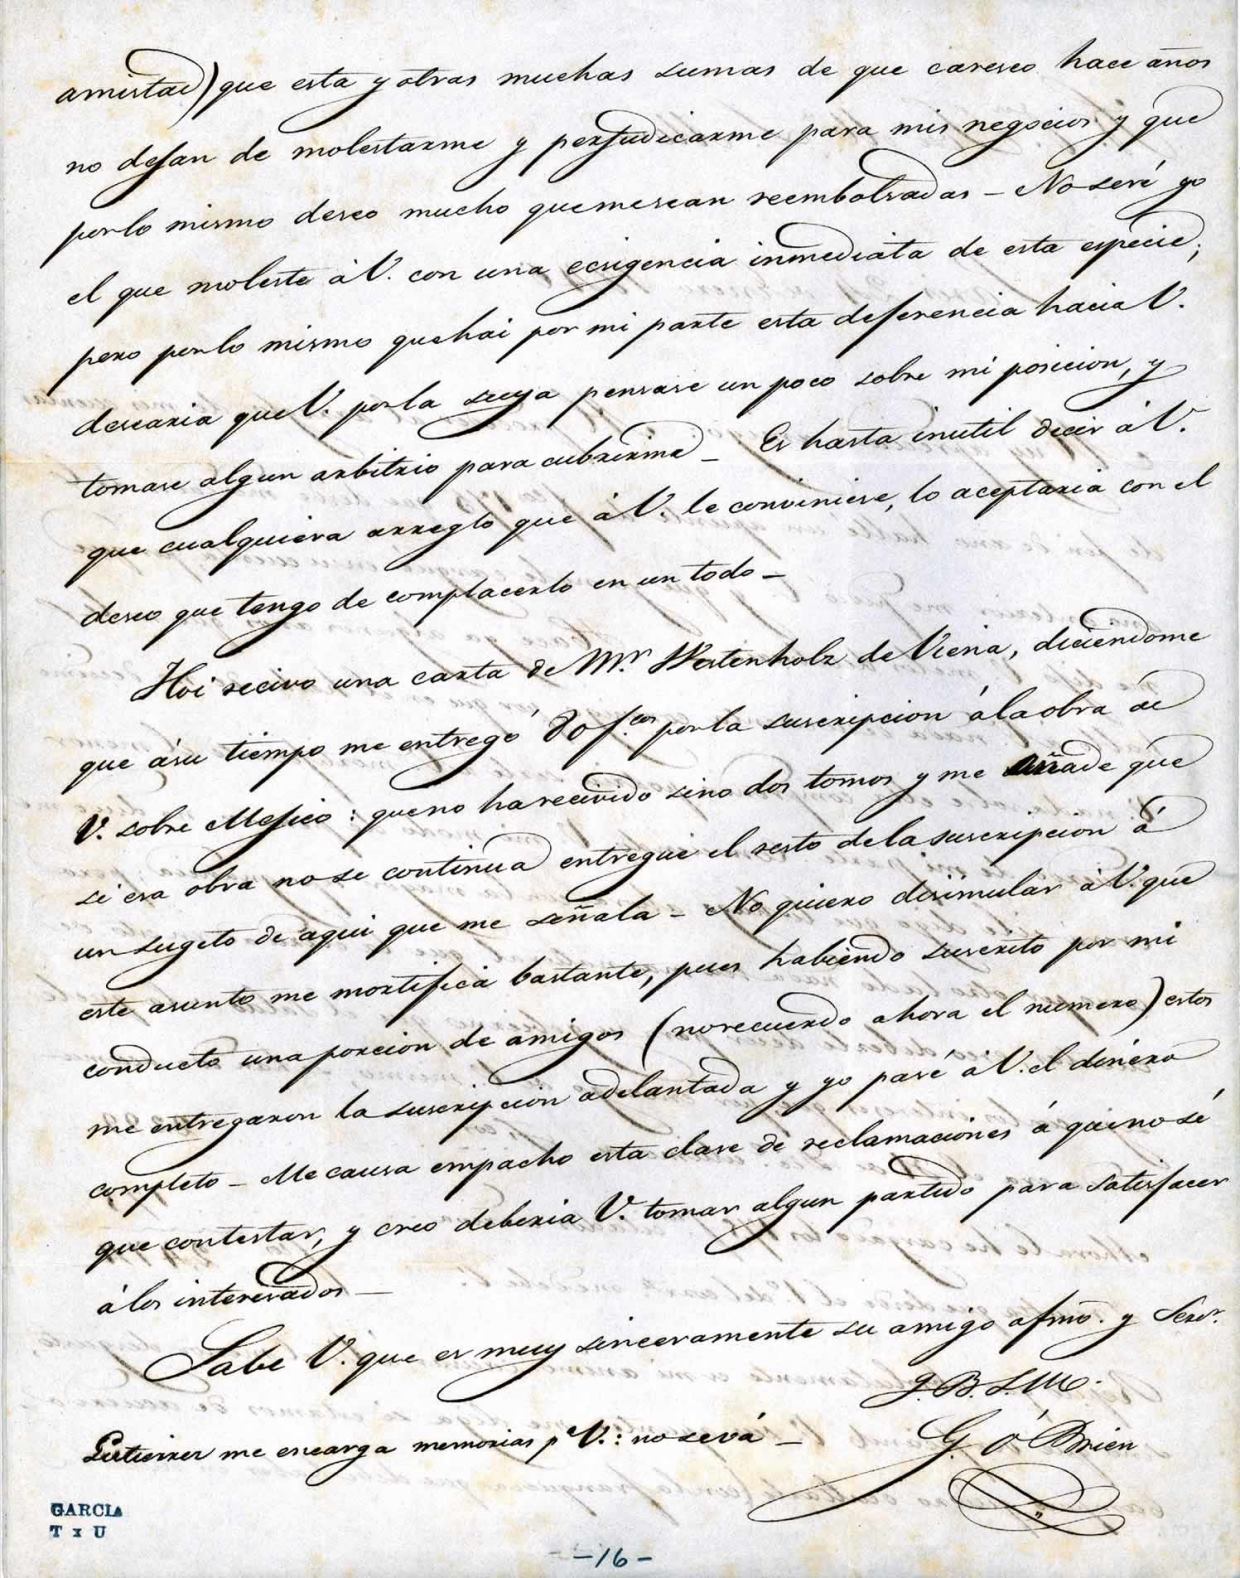 amistad) que esta y otras muchas sumas de que caresco hace años
no dejan de molestarme y perjudicarme para mis negocios y que
por lo mismo deseo mucho que me sean reembolsadas - No seré yo
el que moleste á V. con una ecsigencia inmediata de esta especie;
pero por lo mismo que hai por mi parte esta deferencia hacia V.
desearia que V. por la suya pensase un poco sobre mi posicion, y
tomase algun arbitrio para cubrirme - Es hasta inutil decir á V.
que cualquiera arreglo que á V. le conviniese, lo aceptaria con el
deseo que tengo de complacerlo en un todo -
Hoi recivo una carta de Mr. Westenholz de Viena, diciendome
que á su tiempo me entregó 80 f.cos por la suscripcion á la obra de
V. sobre Mejico: que no ha recivido sino dos tomos y me añade que
si esa obra no se continua entregue el resto de la suscripcion á
un sugeto de aqui que me señala - No quiero disimular á V. que
este asunto me mortifica bastante, pues habiendo suscrito por mi
conducto una porcion de amigos (no recuerdo ahora el numero) estos
me entregaron la suscripcion adelantada y yo pasé á V. el dinero
completo - Me causa empacho esta clase de reclamaciones á qe. no sé
que contestar, y creo deberia V. tomar algun partido para satisfacer
á los interesados -
Sabe V. que es muy sinceramente su amigo afmo. y Serv.r
Q. B. S. M.
G. O'Brien
Gutierrez me encarga memorias pa. V.: no se vá -
GARCIA
T x U
-16-